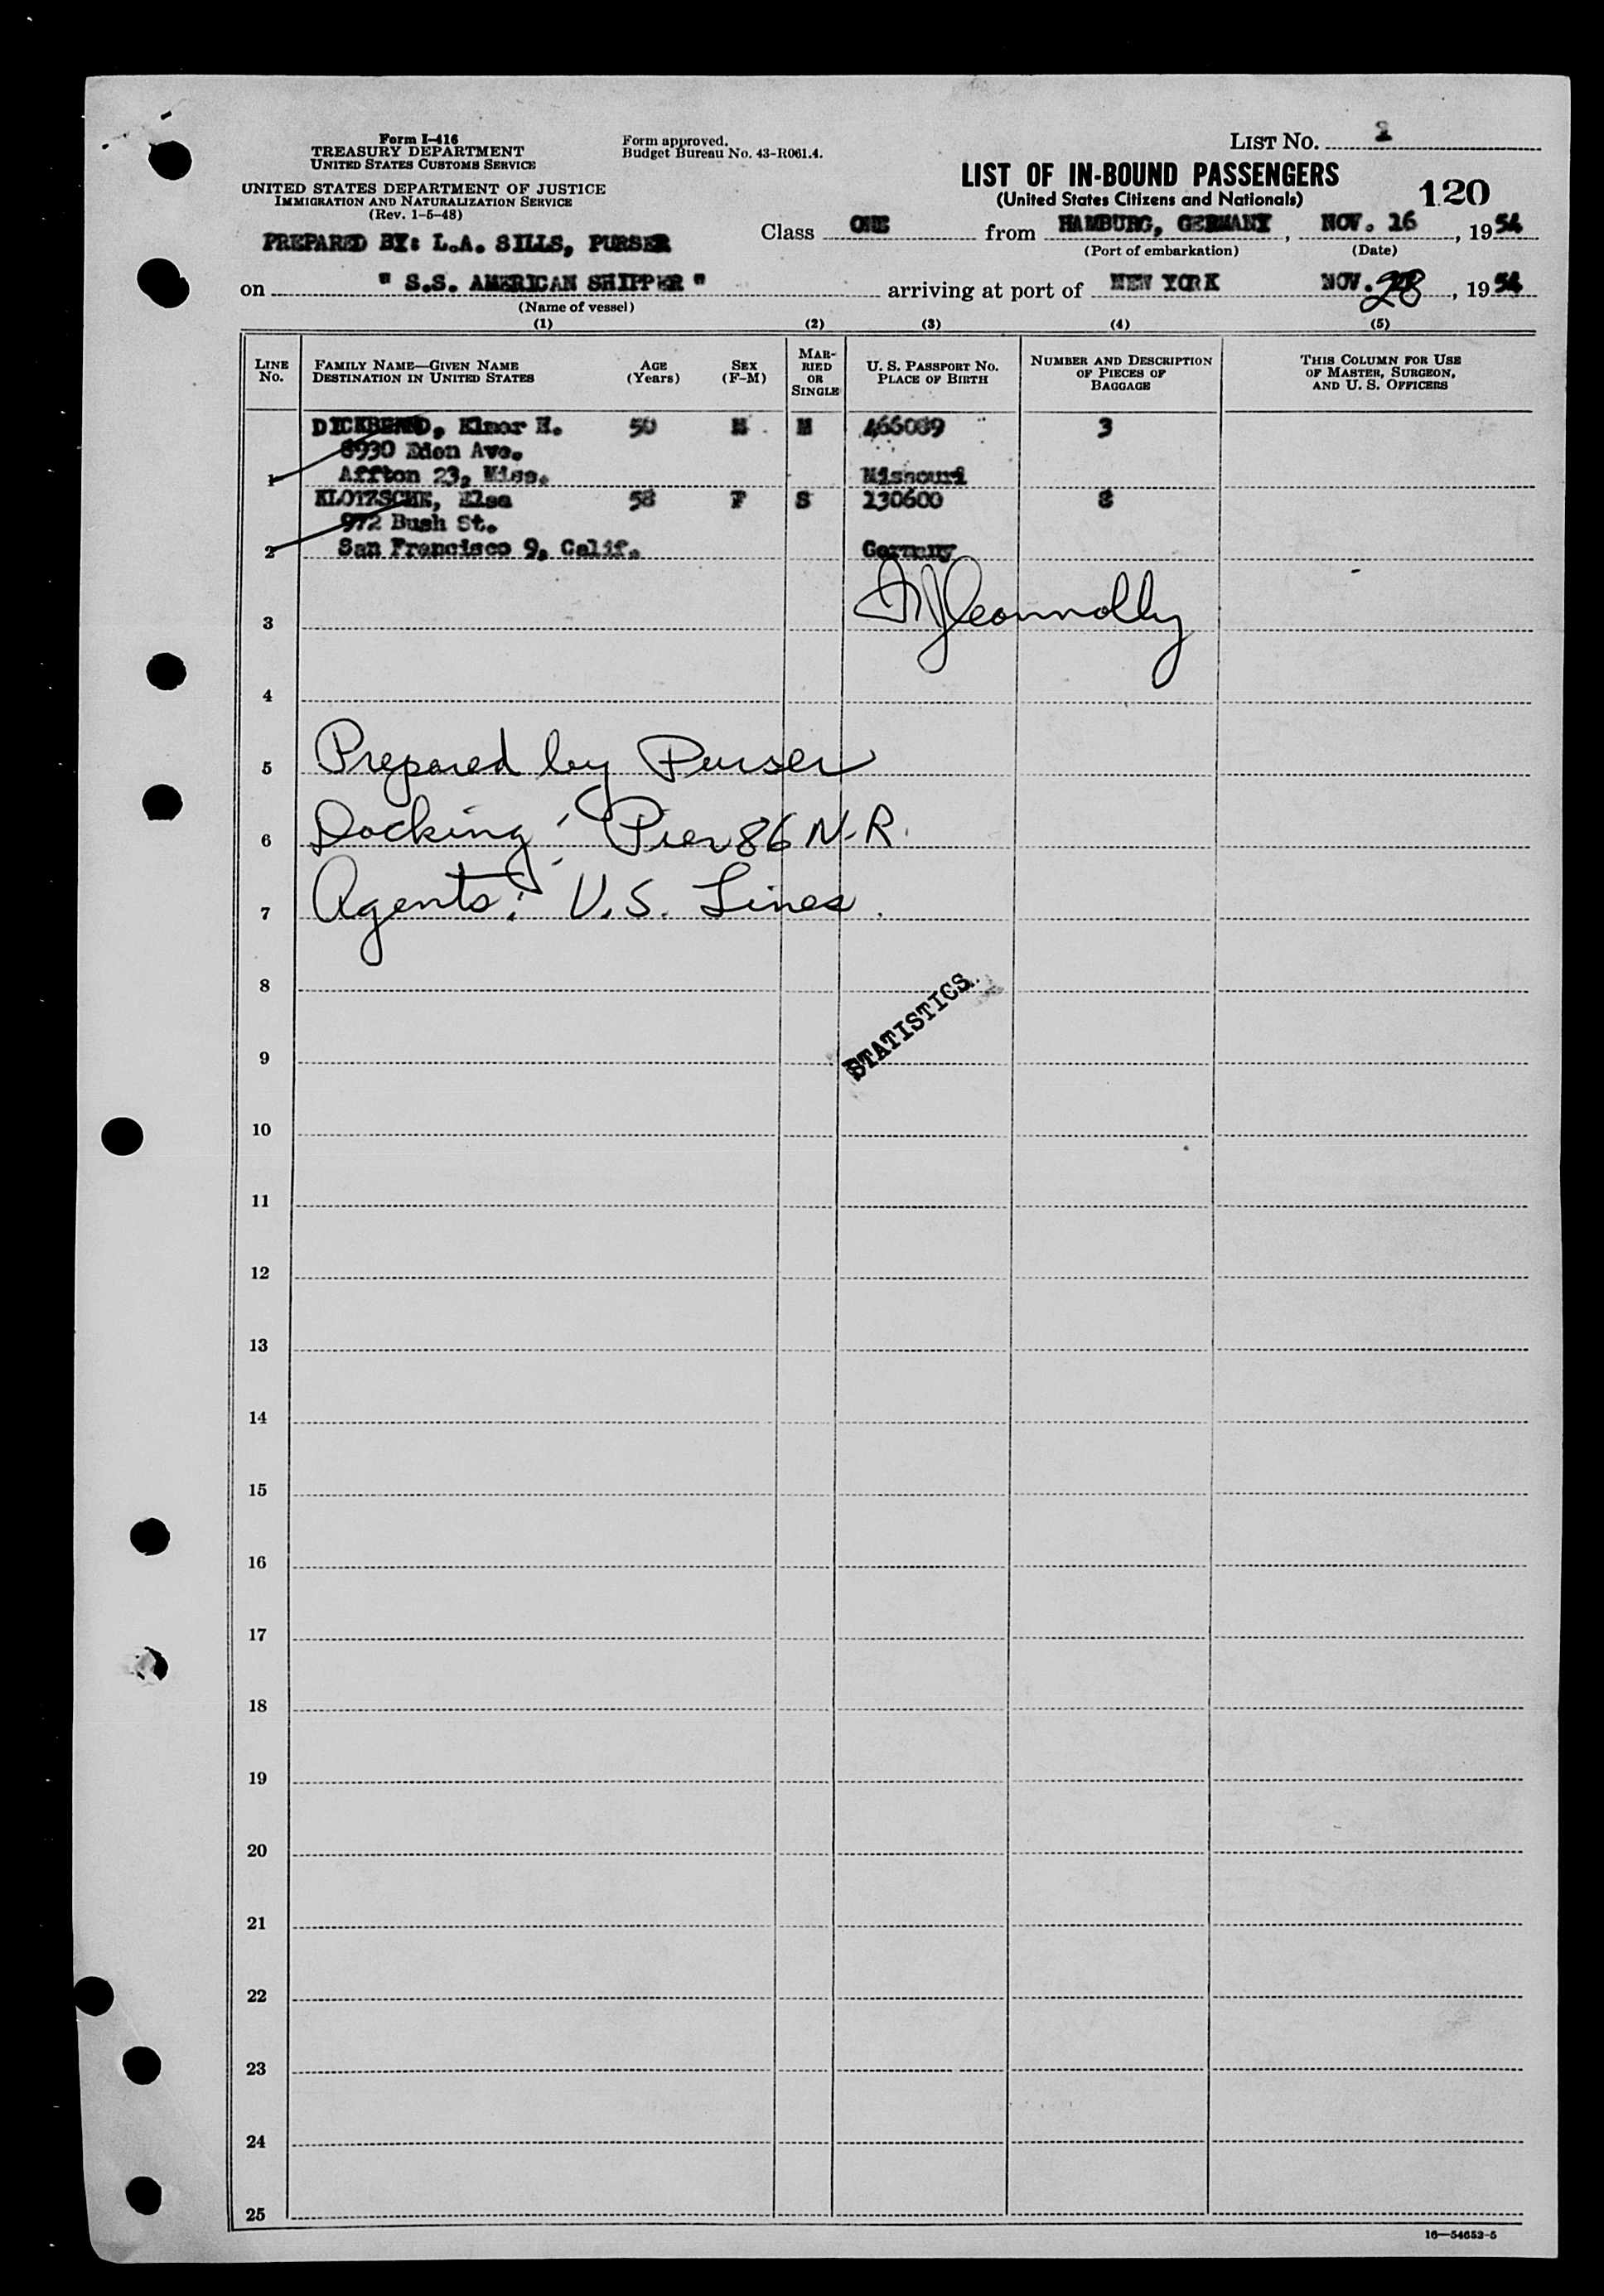 Form I-416
TREASURY DEPARTMENT
UNITED STATES CUSTOMS SERVICE
UNITED STATES DEPARTMENT OF JUSTICE
IMMIGRATION AND NATURALIZATION SERVICE
(Rev. 1-5-48)
Form approved.
Budget Bureau No. 43-R061.4.
LIST No.
LIST OF IN-BOUND PASSENGERS
(United States Citizens and Nationals)
120
PREPARED BY: L.A. SILLS, PURSER
Class ONE from HAMBURG, GERMANY, NOV. 16, 1954
(Port of embarkation) (Date)
on " S.S. AMERICAN SHIPPER " arriving at port of NEW YORK NOV. 28, 1954
(Name of vessel)
(1) (2) (3) (4) (5)
LINE No. FAMILY NAME—GIVEN NAME DESTINATION IN UNITED STATES AGE (Years) SEX (F-M) MARRIED OR SINGLE U. S. PASSPORT No. PLACE OF BIRTH NUMBER AND DESCRIPTION OF PIECES OF BAGGAGE THIS COLUMN FOR USE OF MASTER, SURGEON, AND U. S. OFFICERS
Elmor H. 50 M M 466089 3
8930 Eden Ave.
1 Affton 23, Miss. Missouri
KLOTZSCHE, Elsa 58 F S 130600 8
972 Bush St.
2 San Francisco 9, Calif. Germany
Connolly
3
4
5 Prepared by Purser
6 Docking: Pier 86 N.R.
7 Agents: U.S. Lines.
8
STATISTICS
9
10
11
12
13
14
15
16
17
18
19
20
21
22
23
24
25
16—54652-5